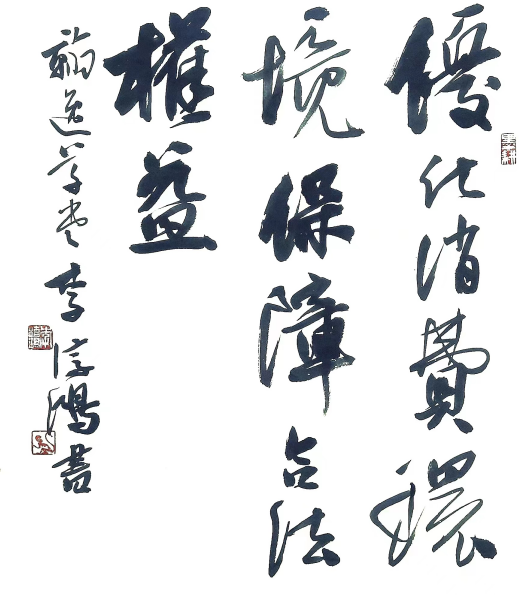 優化消費環
境保障合法
權益
翰逸草堂李淳鴻書